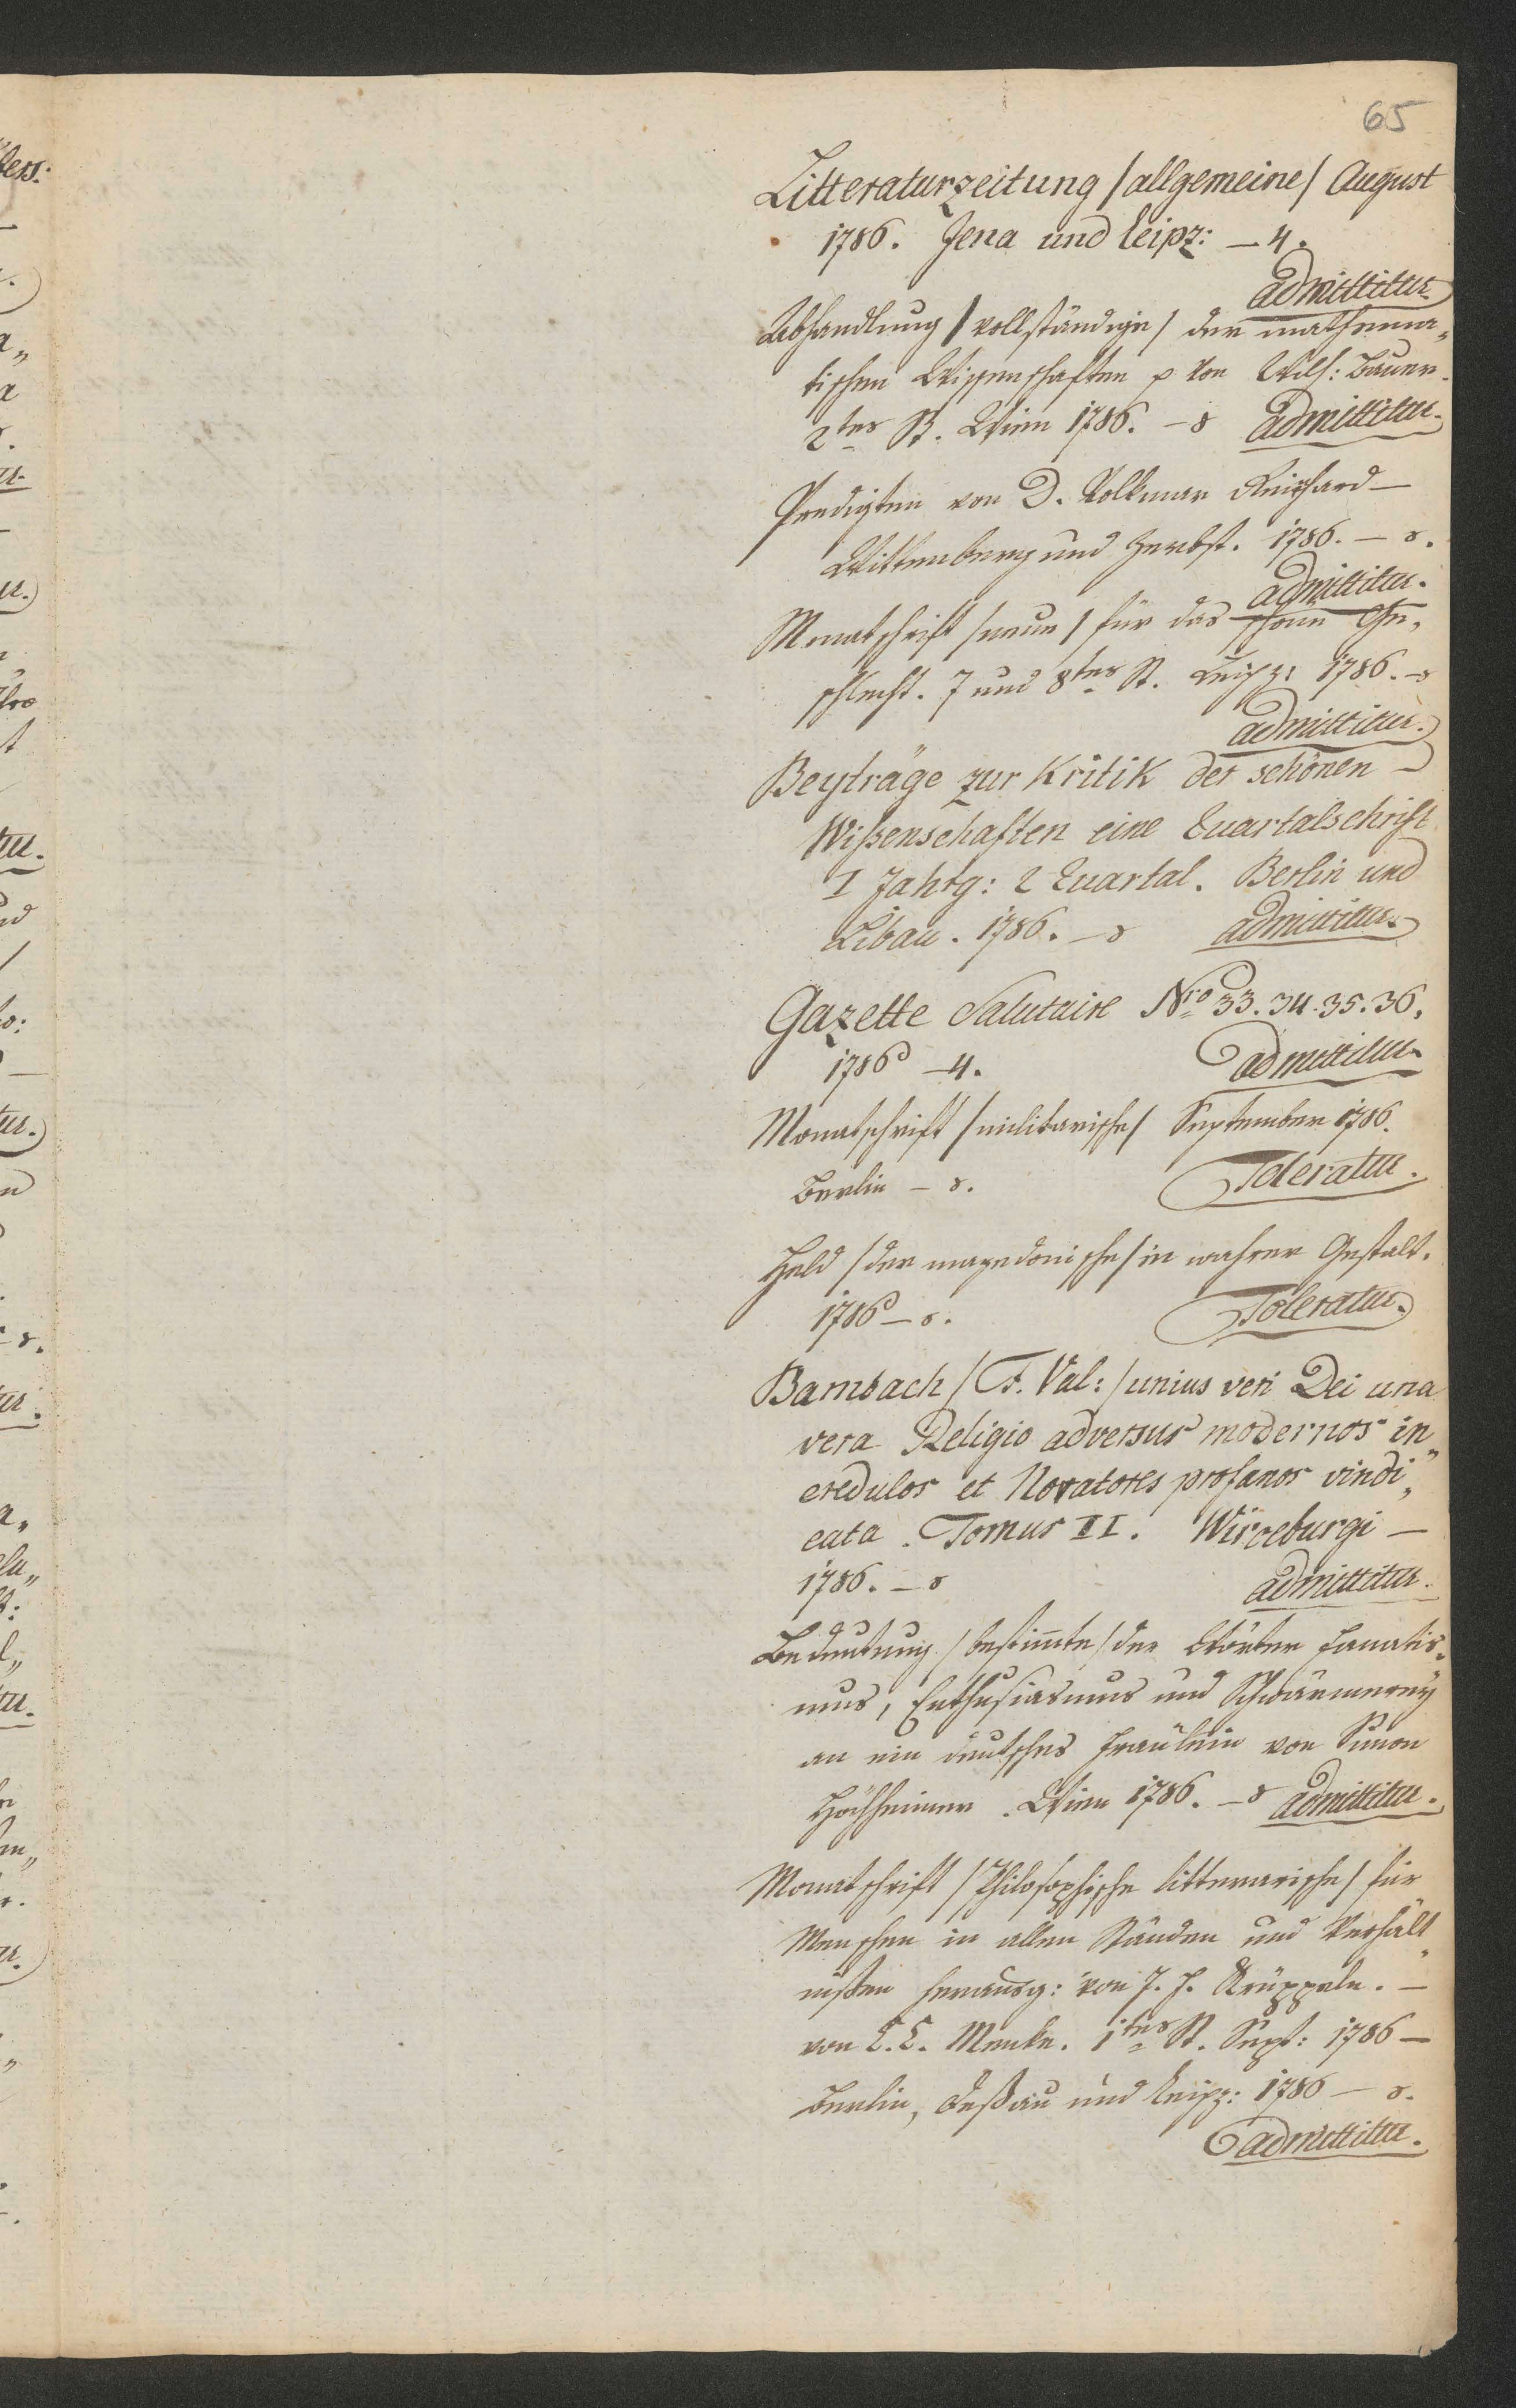 65
Litteraturzeitung /allgemeine/ August
1786. Jena und Leipz: — 4.
admittitur
Abhandlung /vollständige/ der mathema„
tischen Wissenschaften p von Wilh: Bauer.
2tes B. Wien 1786. — 8 admittitur.
Predigten von D. Volkmar Reinhard —
Wittenberg und Zerbst. 1786. — 8.
admittitur.
Monatschrift /neue/ für das schöne Ge„
schlecht. 7 und 8tes St. Leipz: 1786. — 8
admittitur.
Beyträge zur Kritik der schönen —
Wißenschaften eine Quartalschrift
I Jahrg: 2 Quartal. Berlin und
Libau. 1786. — 8 admittitur.
Gazette Salutaire Nro 33. 34. 35. 36.
1786 — 4. admittitur.
Monatschrift /militarische/ September 1786.
Berlin — 8. Toleratur.
Held /der mazedonische/ in wahrer Gestalt.
1786 — 8. Toleratur.
Bambach /F. Val:/ unius veri Dei una
vera Religio adversus modernos in„
credulos et Novatores profanos vindi„
cata. Tomus II. Wirceburgi —
1786. — 8 admittitur.
Bedeutung /bestimmte/ der Wörter Fanatis„
mus, Enthusiasmus und Schwärmerey
an ein deutsches Fräulein von Simon
Höchheimer. Wien 1786. — 8 admittitur.
Monatschrift /Philosophische litterarische/ für
Menschen in allen Ständen und Verhält„
nißen herausg: von J. H. Krüppeln. —
von C. C. Menke. 1tes St. Sept: 1786 —
Berlin, Deßau und Leipz: 1786 — 8.
admittitur.